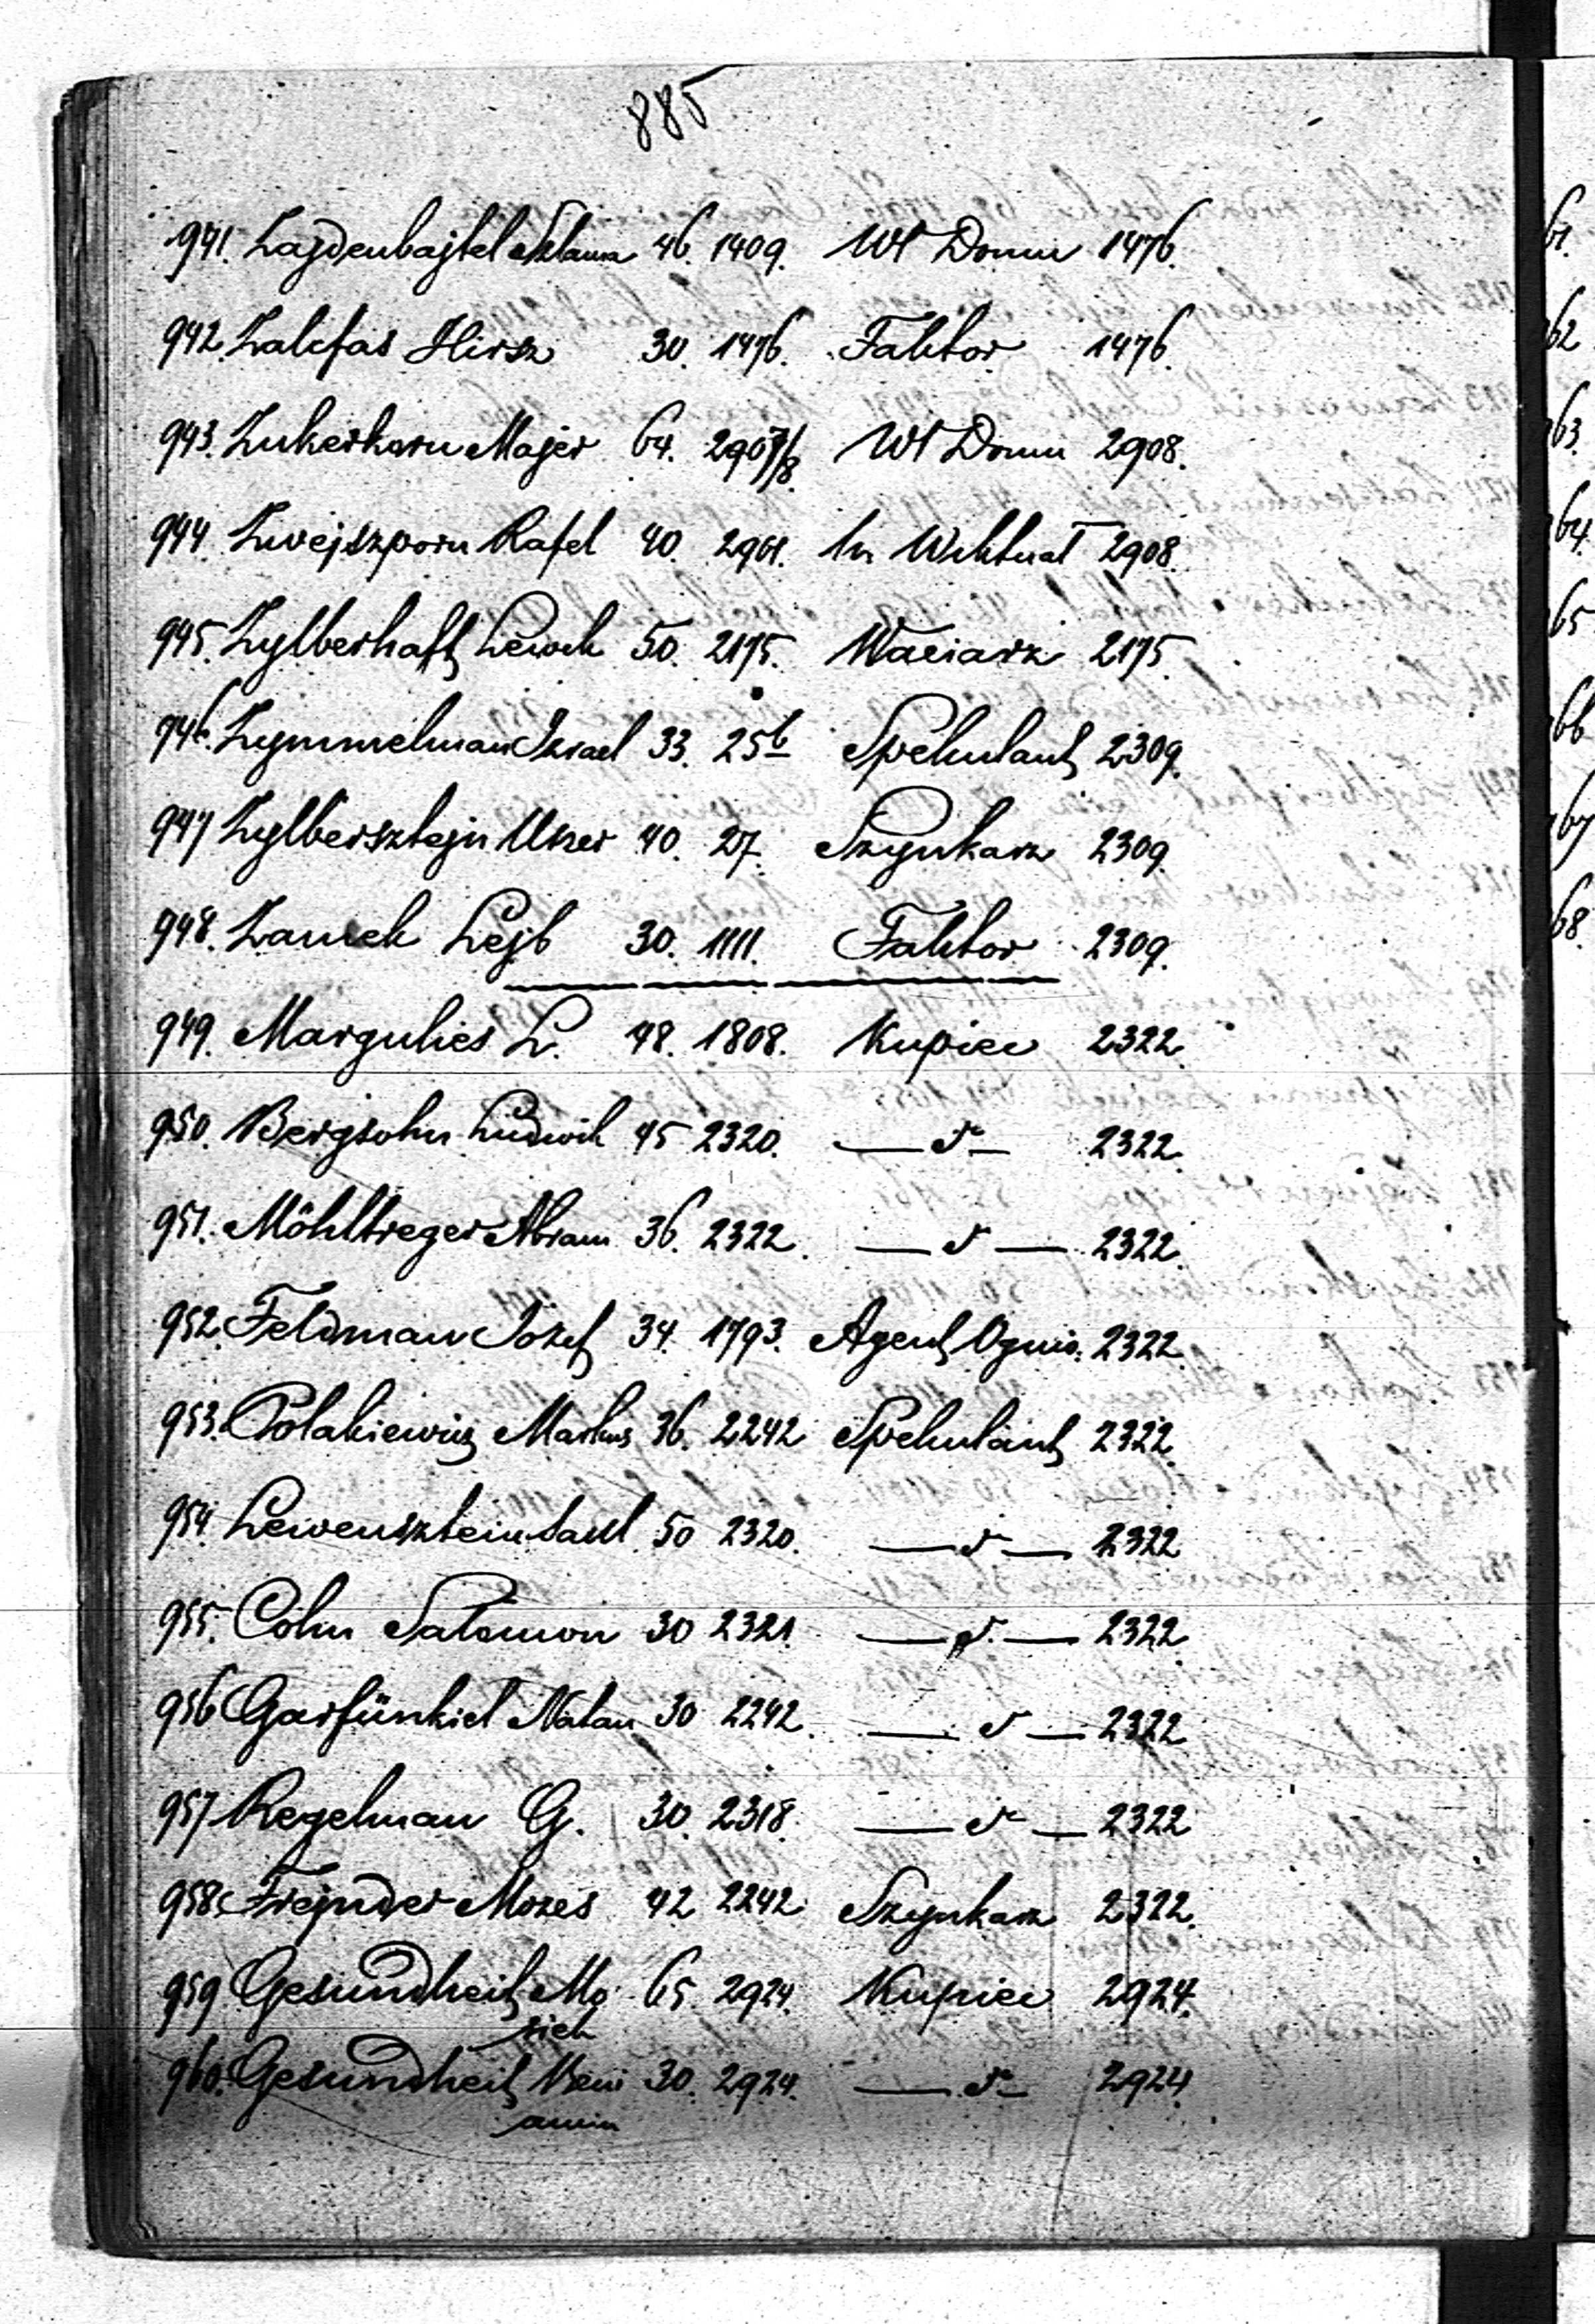 885
941. Zajdenbajtel Szlama 46. 1409. Wł Domu 1476.
942. Zalcfas Hirsz 30. 1476. Faktor 1476.
943. Zukerkorn Majer 64. 2907/8. Wł Domu 2908.
944. Zwejszporn Rafel 40. 2901. Wiktuał 2908.
945. Zylberhaft Lewek 50. 2175. Waciarz 2175
946. Zymmelman Izrael 33. 25b Spekulant 2309.
947 Zylbersztejn Uszer 40. 27. Szynkarz 2309.
948. Zamek Lejb 30. 1111. Faktor 2309.
949. Margulies L. 48. 1808. Kupiec 2322.
950. Bergsohn Ludwik 45 2320. — d° — 2322.
951. Möhltreger Abram 36. 2322. — d — 2322.
952. Feldman Józef 34. 1793. Agent Ognio. 2322.
953. Polakiewicz Markus 36. 2242 Spekulant 2322.
954. Lewensztein 50 2320. — d — 2322
955. Cohn Salomon 30 2321. — d. — 2322.
956 Garfünkiel Natan 30 2242. — d — 2322
957 Regelman G. 30. 2318. — d° — 2322
958. Frejnder Mozes 42 2242 Szynkarz 2322.
959 Gesundheit Mo 65. 2924. Kupiec 2924.
siek
960. Gesundheit Beni 30. 2924. — d° — 2924
amin
61.
62
63.
64.
65
66
67
68.